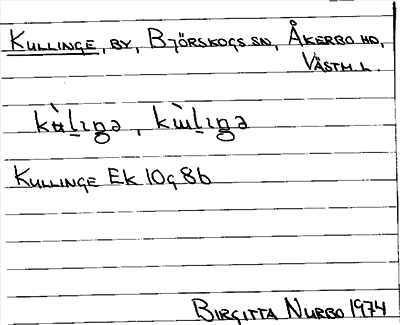 KULLINGE, BY, BJÖRSKOGS SN, ÅKERBO HD,
VÄSTM. L.
kʉ̀lıŋə, kɯ̀lıŋə
KULLINGE EK 10g 8b
BIRGITTA NURBO 1974